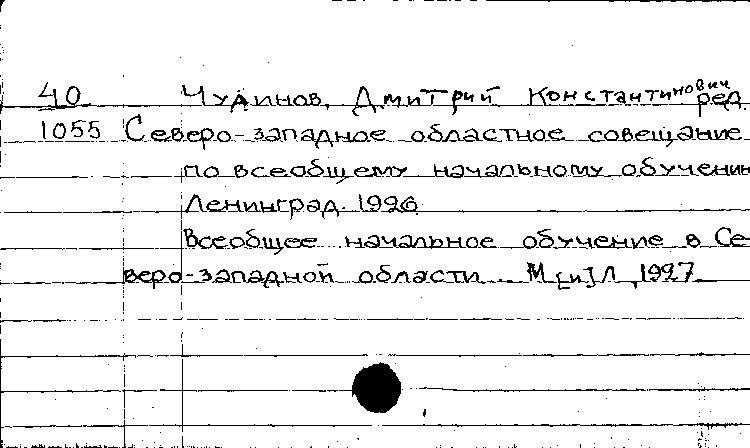 40 Чудинов, Дмитрий Константинович ред.
1055 Северо-западное областное совещание
по всеобщему начальному обучению
Ленинград. 1926
Всеобщее начальное обучение в Се-
веро-западной области... М [и] Л, 1927.